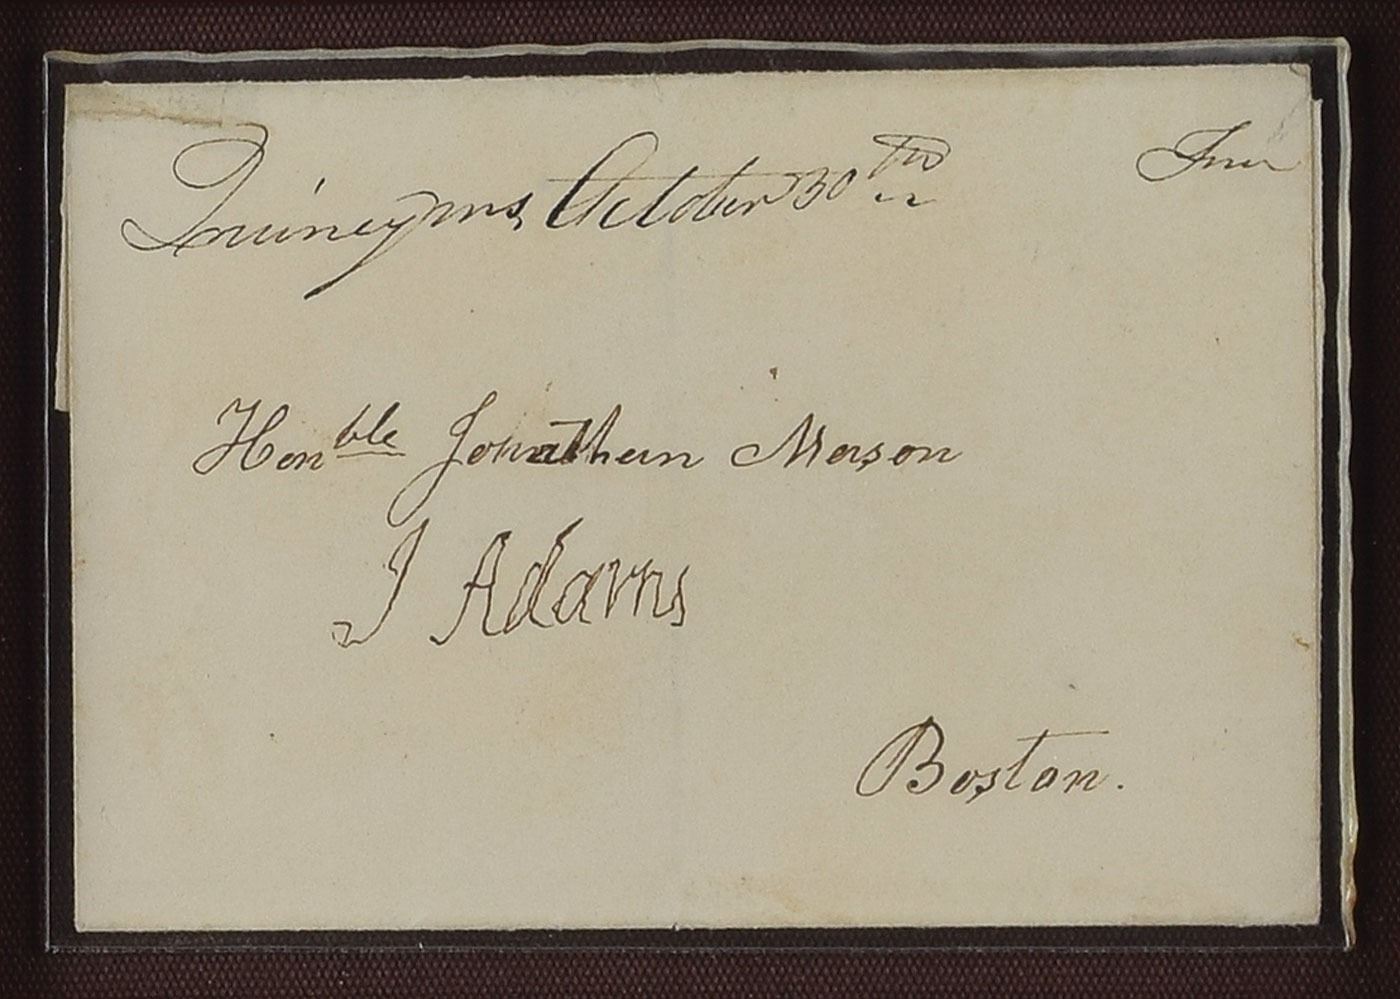 Quincy ms, October 30th Free
Honble Jonathan Mason
J Adams
Boston.